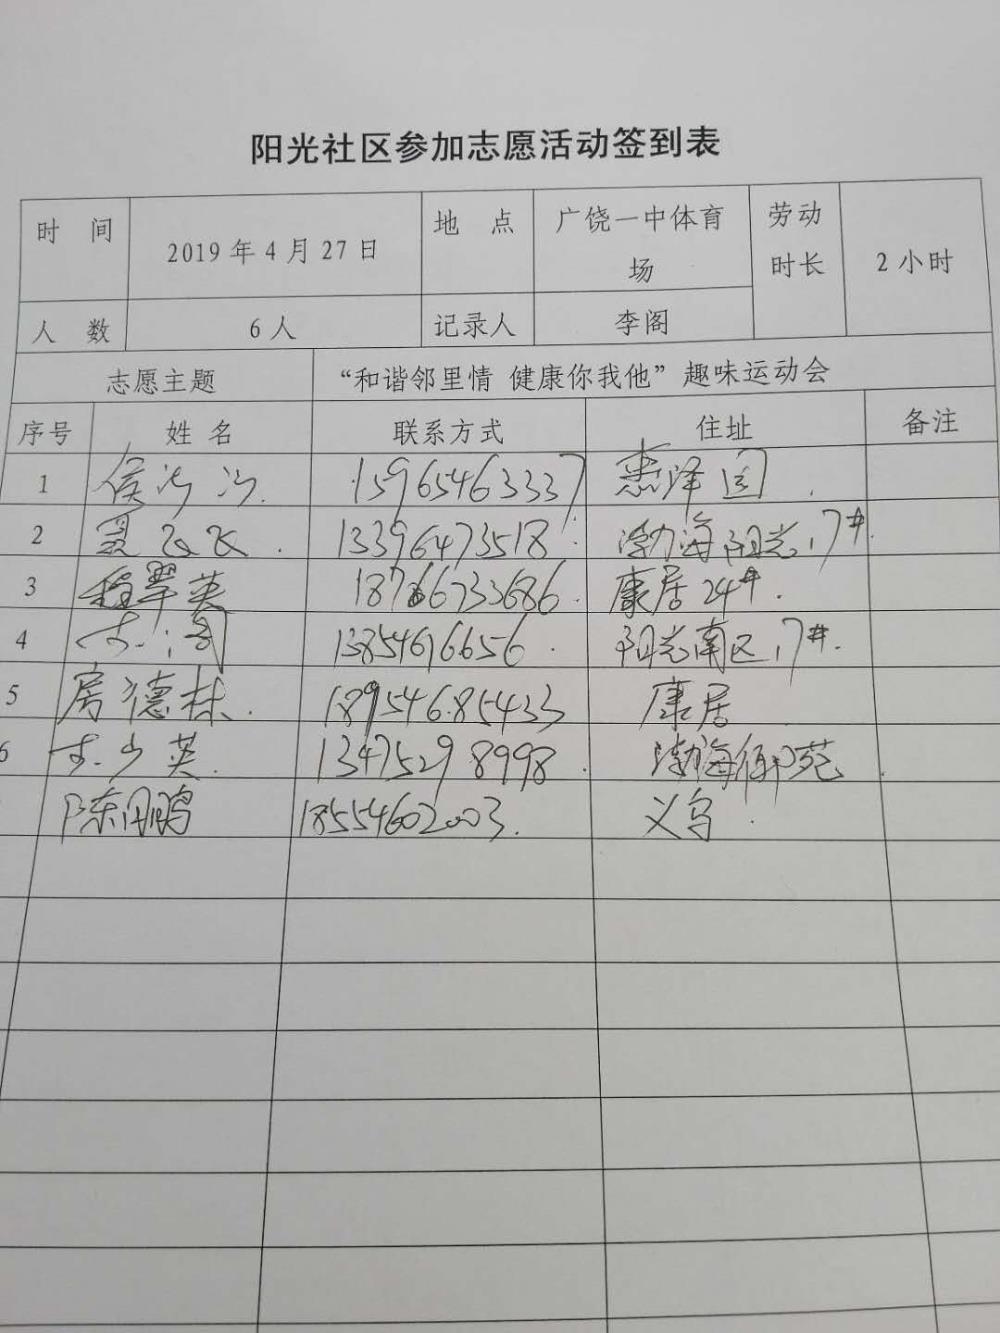 阳光社区参加志愿活动签到表
时 间 2019 年 4 月 27 日 地 点 广饶一中体育场 劳动时长 2 小时
人 数 6 人 记录人 李阁
志愿主题 “和谐邻里情 健康你我他”趣味运动会
序号 姓 名 联系方式 住址 备注
1 侯 15965463337 惠泽园
2 聂飞飞 13396473518 渤海阳光 17#
3 程翠英 18766733686 康居24#
4 李阁 13854616656 阳光南区 17#
5 房德林 18954685433 康居
6 李少英 13475298998 渤海御苑
陈闪鹏 18554602003 义乌